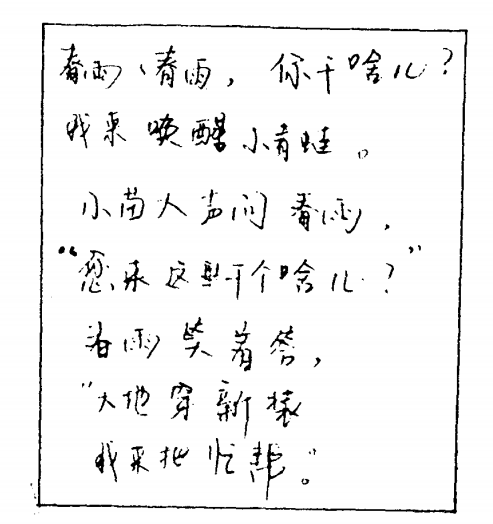 春雨、春雨，你干啥儿？
我来唤醒小青蛙。
小苗人声问春雨，
“您来这里干个啥儿？”
春雨笑着答，
“大地穿新装
我来把忙帮。”